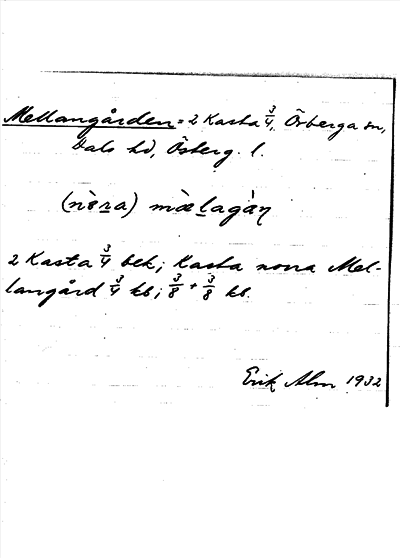 Mellangården = 2 Kasta 3/4, Örberga sn,
Dals hd, Österg. l.
(nò̀ra) mæ̀lagàṇ
2 Kasta 3/4 bek; Kasta norra Mel-
langård 3/4 kb; 3/8 + 3/8 kb.
Erik Alm 1932